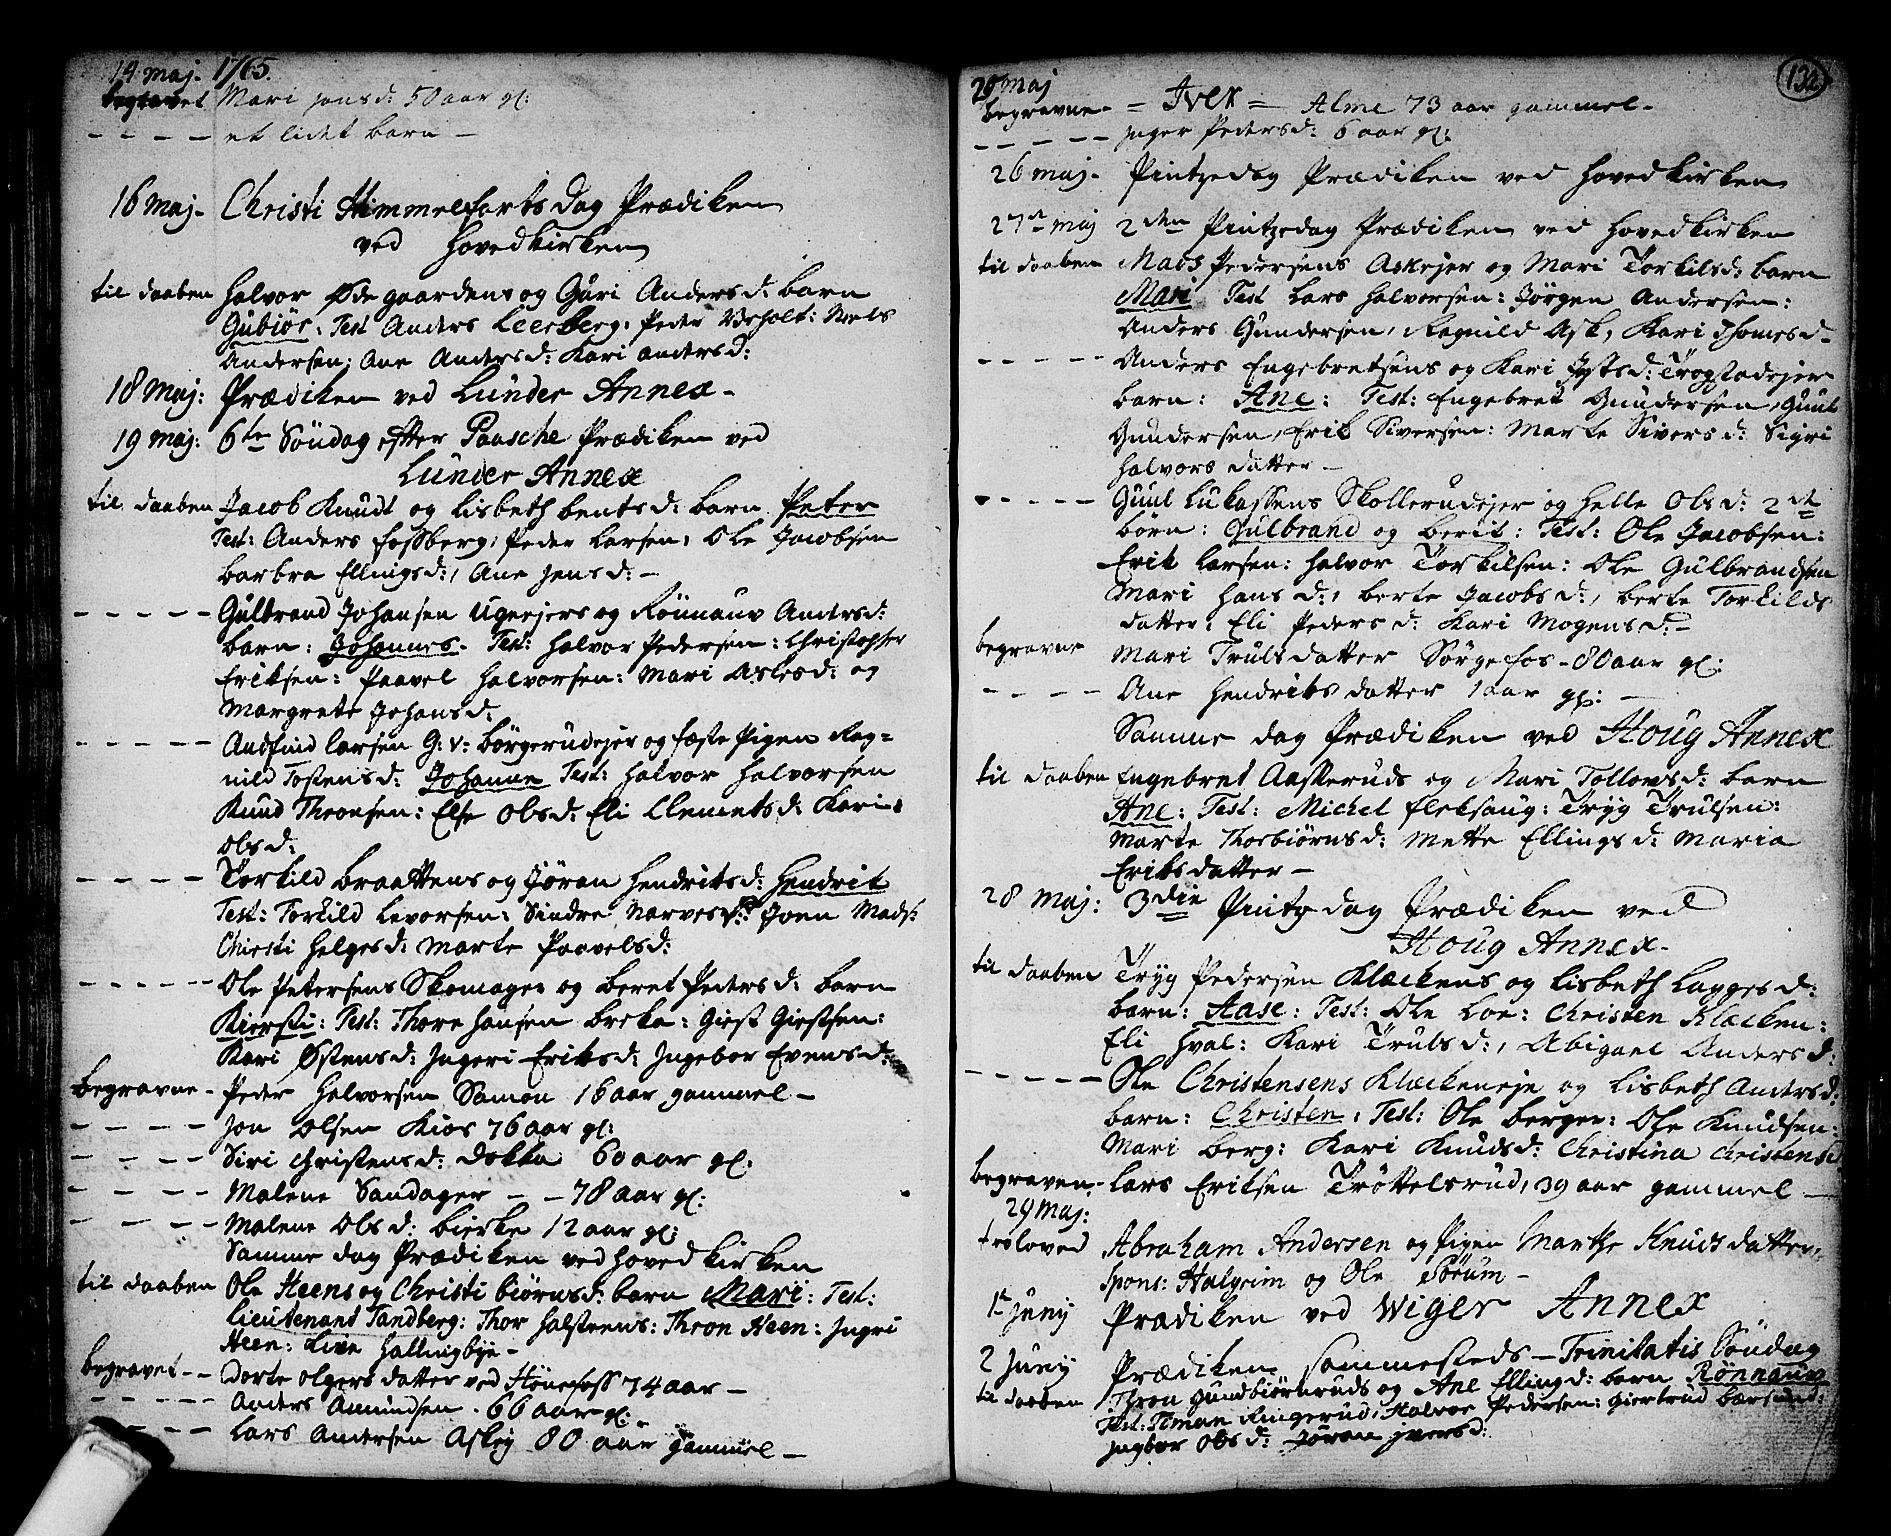 14 maj. 1765.
begravet Mari Jonsd: 50 aar gl:
- - - - et lidet barn -
16 maj. Christi Himmelfarts Dag Prædiken
ved Hovedkirken
til daaben Halvor Ødegaardens og Guri Andersd: barn
Gubiör: Test Anders Leerberg: Peder Vesholt: Niels
Andersen: Ane Andersd: Kari Andersd:
18 Maj: Prædiken ved Lunder Annex -
19 maj: 6te Söndag efter Paasche Prædiken ved
Lunder Annex
til daaben Jacob Knudt og Lisbeth bentsd: barn Peter
Test: Anders Fossberg, Peder Larsen, Ole Jacobsen
barbra Ellingsd:, Ane Jensd: -
- - - - - Gulbrand Johansen Ugeejers og Rönnauv Andersd:
barn: Johannes. Test: Halvor Pedersen: Christopher
Eriksen: Paavel Halvorsen: Mari Aslesd: og
Margrete Johansd:
- - - - - Audfind Larsen G: v: börgerudejer og fæste Pigen Rag=
nild Tostensd: Johanne Test: Halvor Halvorsen
Knud Thronsen: Else Olsd: Eli Clemetsd: Kari
Olsd:
- - - - - Torkild Braattens og Jöran Hendriksd: Hendrik
Test: Torkild Levorsen: Sindre Narvesen: Joen Mads:
Chirsti Helgesd: Marte Paavelsd:
- - - - - Ole Petersens Skomager og Beret Pedersd: barn
Kiersti: Test: Thore Hansen Breka: Giest Giestsen:
Kari Østensd: Ingeri Eriksd: Ingebor Evensd:
begravne - Peder Halvorsen Samon 16 aar gammel -
- - - - Jon Olsen Kios 76 aar gl:
- - - - Siri Christensd: Dokka 60 aar gl:
- - - - Malene Sandager - - 78 aar gl:
- - - - Malene Olsd: bierke 12 aar gl:
Samme dag Prædiken ved Hovedkirken
til daaben Ole Heens og Christi biörnsd: barn Mari: Test:
Lieutenant Tandberg: Thor Halstrens: Thron Heen: Ingri
Heen: Live Hallingbye -
begravet - - Dorte Olgers datter ved Hönefoss 74 aar -
- - - - - Anders Amundsen - 66 aar gl: -
- - - Lars Andersen Askej 80 aar gammel -
132
20 Maj
begravne - = Iver = Alme 73 aar gammel -
- - - - - Inger Pedersd: 6 aar gl:
26 maj. Pintzedag Prædiken ved Hovedkirken
27de maj 2den Pintzedag Prædiken ved Hovedkirken
til daaben Mads Pedersens Askejer og Mari Torkilsd: barn
Mari Test Lars Halvorsen: Jörgen Andersen:
Anders Gundersen, Ragnild Ask, Kari Thomesd -
- - - - - Anders Engebretsens og Kari Jostsd: Trogstadejer
barn: Ane: Test: Engebret Gundersen, Guul
Gundersen, Erik Siversen: Marte Siversd: Sigri
Halvors datter -
- - - - - Guul Lukassens Skollerudejer og Helle Olsd: 2de
börn: Gulbrand og Berit: Test: Ole Jacobsen:
Erik Larsen: Halvor Torkilsen: Ole Gulbrandsen
Mari Hansd:, berte Jacobsd:, berte Torkilds
datter: Eli Pedersd: Kari Mogensd: -
begravne Mari Trulsdatter Sörgefos - 80 aar gl:
- - - - Ane Hendriks datter 1 aar gl: -
Samme dag Prædiken ved Houg Annex
til daaben Engebret Aaskeruds og Mari Tollovsd: barn
Ane: Test: Michel Fleksaug: Tryg Trulsen:
Marte Thorbiörnsd: Mette Ellingsd: Maria
Eriksdatter -
28 Maj: 3die Pintzdag Prædiken ved
Houg Annex -
til daaben Tryg Pedersen Klæckens og Lisbeth Laggesd:
barn: Aase: Test: Ole Loe: Christen Klæcken:
Eli Hval: Kari Trulsd:, Abigael Andersd:
- - - - - Ole Christensens Klæckeneje og Lisbeth Andersd:
barn: Christen: Test: Ole berger: Ole Knudsen:
Mari berg: Kari Knudsd: Christina Christensd
begraven - Lars Eriksen Tröttelsrud, 39 aar gammel -
29 Maj:
troloved Abraham Andersen og Pigen Marthe Knudsdatter,
Spons: Halgrim og Ole Sörum -
1te Junij Prædiken ved Wiger Annex
2 Junij Prædiken sammesteds - Trinitatis Söndag
til daaben Thron Gundbiörnruds og Ane Ellingd: barn Rönnauv
Test: Timan Ringerud, Halvor Pedersen: Giertrud bærsund:
Ingbor Olsd: Jöran Iversd: